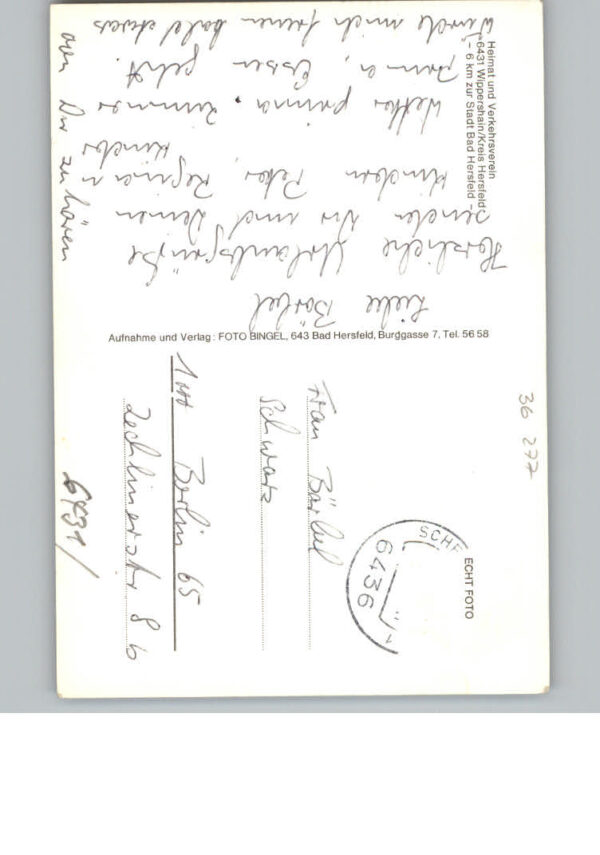 Heimat und Verkehrsverein
6431 Wippershain/Kreis Hersfeld
– 6 km zur Stadt Bad Hersfeld –
Liebe Bärbel
Herzliche Urlaubsgrüße
sendet Dir und Deinen
Kindern Peter, Regina u
Kinder
Wetter prima. Zimmer
prima, Essen gut.
Würde mich freuen bald etwas
von Dir zu hören
Aufnahme und Verlag: FOTO BINGEL, 643 Bad Hersfeld, Burggasse 7, Tel. 56 58
ECHT FOTO
SCHE
6436
Frau Bärbel
Schwarz
1 Berlin 65
Zechlinerstr 8 b
6431/
36 277